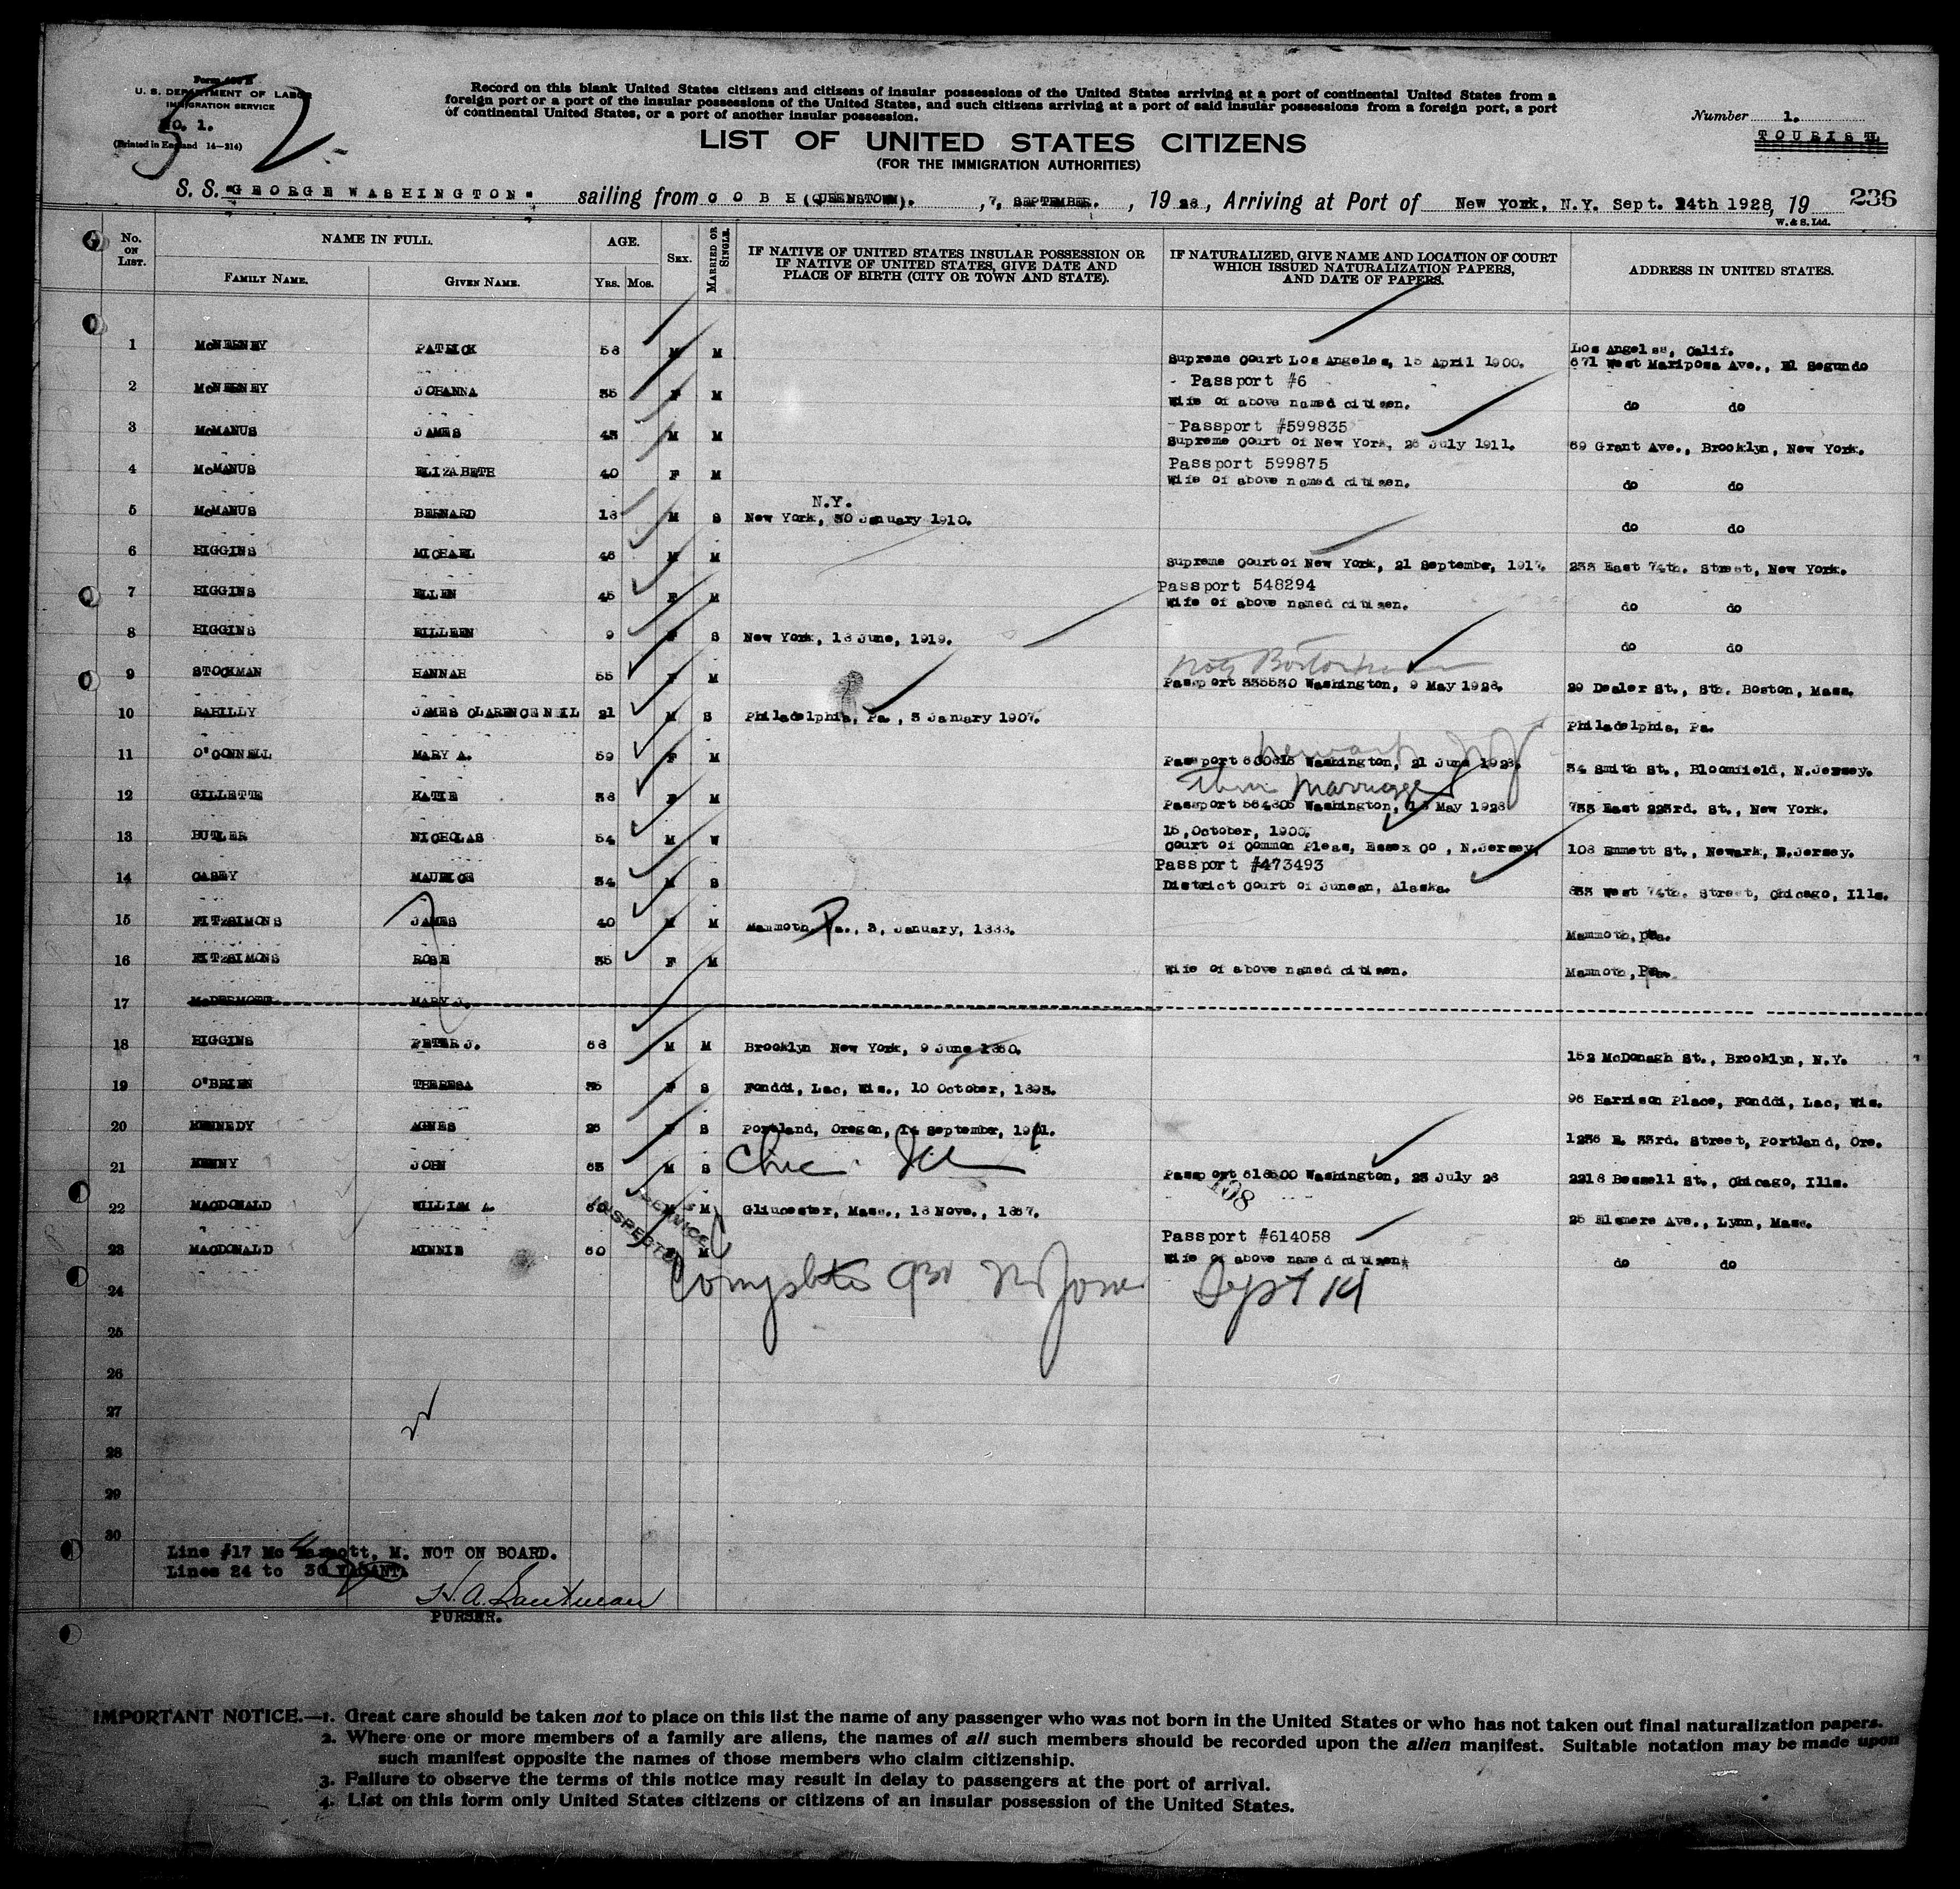 Form
U. S. DEPARTMENT OF LABOR
IMMIGRATION SERVICE
No. 1.
(Printed in England 14—214)
52
Record on this blank United States citizens and citizens of insular possessions of the United States arriving at a port of continental United States from a
foreign port or a port of the insular possessions of the United States, and such citizens arriving at a port of said insular possessions from a foreign port, a port
of continental United States, or a port of another insular possession.
Number 1.
TOURIST
LIST OF UNITED STATES CITIZENS
(FOR THE IMMIGRATION AUTHORITIES)
S. S. "GEORGE WASHINGTON" sailing from COBH (QUEENSTOWN). , 7, SEPTEMBER. , 1928, Arriving at Port of New York, N.Y. Sept. 14th 1928, 19 236
W. & S. Ltd.
No. ON LIST. NAME IN FULL. AGE. SEX. MARRIED OR SINGLE. IF NATIVE OF UNITED STATES INSULAR POSSESSION OR IF NATIVE OF UNITED STATES, GIVE DATE AND PLACE OF BIRTH (CITY OR TOWN AND STATE). IF NATURALIZED, GIVE NAME AND LOCATION OF COURT WHICH ISSUED NATURALIZATION PAPERS, AND DATE OF PAPERS. ADDRESS IN UNITED STATES.
FAMILY NAME. GIVEN NAME. YRS. MOS.
Los Angeles, Calif.
1 McNERNEY PATRICK 58 M M Supreme Court Los Angeles, 15 April 1900. 671 West Mariposa Ave., El Segundo
- Passport #6
2 McNERNEY JOHANNA 35 F M Wife of above named citizen. do do
-Passport #599835
3 McMANUS JAMES 45 M M Supreme Court of New York, 26 July 1911. 69 Grant Ave., Brooklyn, New York.
Passport 599875
4 McMANUS ELIZABETH 40 F M Wife of above named citizen. do do
N.Y.
5 McMANUS BERNARD 18 M S New York, 30 January 1910. do do
6 HIGGINS MICHAEL 46 M M Supreme Court of New York, 21 September, 1917. 233 East 74th. Street, New York.
Passport 548294
7 HIGGINS ELLEN 45 F M Wife of above named citizen. do do
8 HIGGINS EILLEEN 9 F S New York, 18 June, 1919. do do
Boston
9 STOCKMAN HANNAH 55 F M Passport 535530 Washington, 9 May 1928. 29 Dealer St., Sth. Boston, Mass.
10 RAHILLY JAMES CLARENCE NEIL 21 M S Philadelphia, Pa., 3 January 1907. Philadelphia, Pa.
Newark NJ
11 O'CONNELL MARY A. 59 F M Passport 600815 Washington, 21 June 1928. 34 Smith St., Bloomfield, N.Jersey.
Thru Marriage
12 GILLETTE KATIE 38 F M Passport 564805 Washington, 18 May 1928 733 East 223rd. St., New York.
15, October, 1900.
13 BUTLER NICHOLAS 54 M W Court of Common Pleas, Essex Co, N.Jersey. 108 Emmett St., Newark, N.Jersey.
Passport #473493
14 CASEY MAURICE 34 M S District Court of Junean, Alaska. 833 West 74th. Street, Chicago, Ills.
15 FITZSIMONS JAMES 40 M M Mammoth, Pa., 3, January, 1888. Mammoth, Pa.
16 FITZSIMONS ROSE 35 F M Wife of above named citizen. Mammoth, Pa.
17 McDERMOTT MARY J.
18 HIGGINS PETER J. 68 M M Brooklyn New York, 9 June 1860. 152 McDonagh St., Brooklyn, N.Y.
19 O'BRIEN THERESA 35 F S Fonddi, Lac, Wis., 10 October, 1893. 96 Harrison Place, Fonddi, Lac, Wis.
20 KENNEDY AGNES 26 F S Portland, Oregon, 14 September, 1901. 1236 E. 33rd. Street, Portland, Ore.
Chic. Ill
21 KENNY JOHN 63 M S Passport 618500 Washington, 23 July 28 2218 Bessell St., Chicago, Ills.
108
22 MACDONALD WILLIAM A. M M Gliucester, Mass., 18 Nove., 1867. 25 Elsmere Ave., Lynn, Mass.
Passport #614058
23 MACDONALD MINNIE 60 F M Wife of above named citizen. do do
SERVICE
INSPECTOR
24 Complete Sept 14
25
26
27
28
29
30
Line #17 Mc Dermott, M. NOT ON BOARD.
Lines 24 to 30 VACANT.
PURSER.
IMPORTANT NOTICE.—1. Great care should be taken not to place on this list the name of any passenger who was not born in the United States or who has not taken out final naturalization papers.
2. Where one or more members of a family are aliens, the names of all such members should be recorded upon the alien manifest. Suitable notation may be made upon
such manifest opposite the names of those members who claim citizenship.
3. Failure to observe the terms of this notice may result in delay to passengers at the port of arrival.
4. List on this form only United States citizens or citizens of an insular possession of the United States.